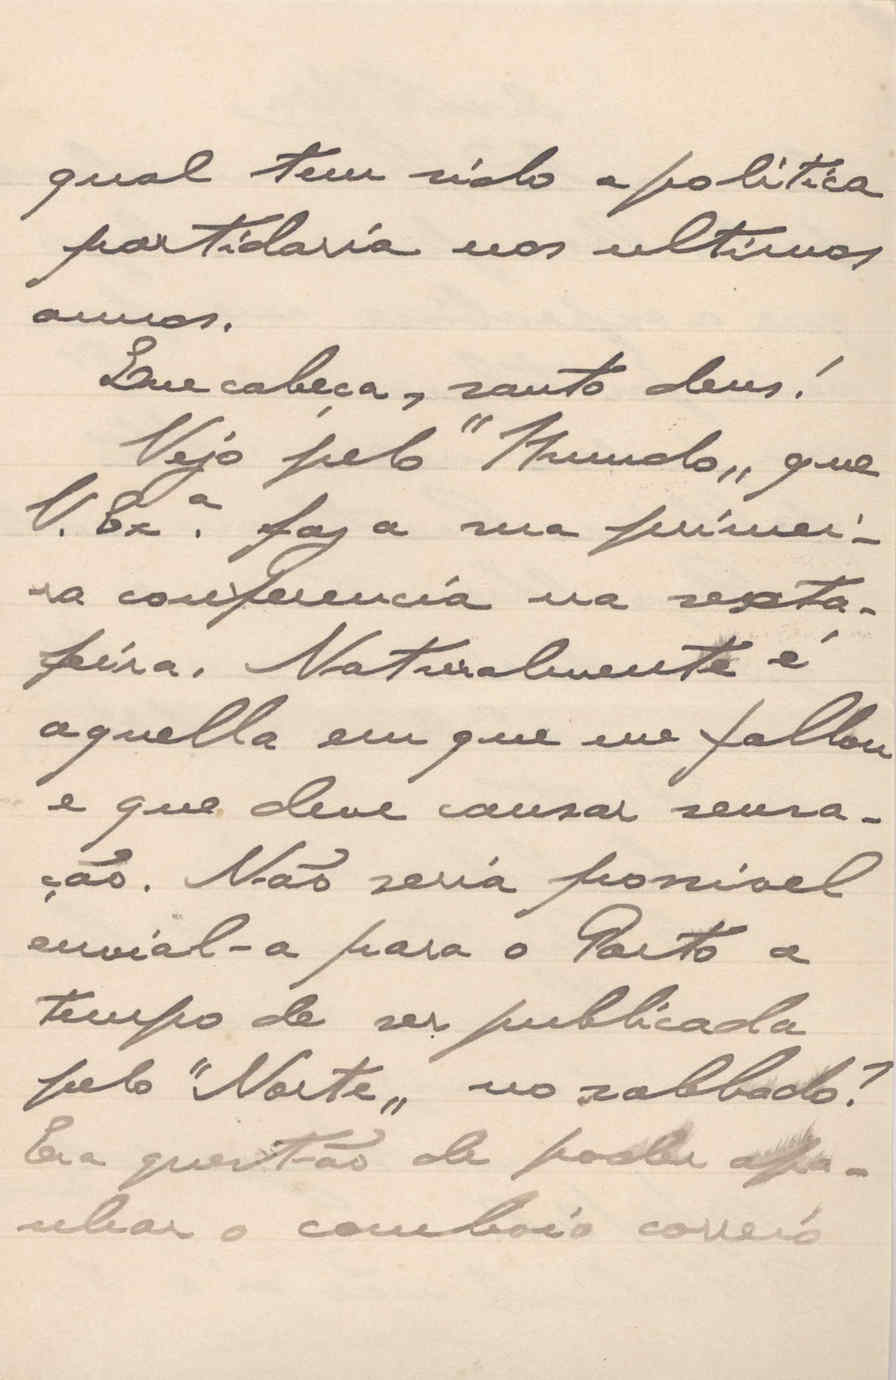 qual tem sido a politica
partidaria nos ultimos
annos.
Que cabeça, santo deus!
Vejo pelo "Mundo„ que
V. Ex.ª faz a sua primei-
ra conferencia na sexta-
feira. Naturalmente é
aquella em que me fallou
e que deve causar sensa-
ção. Não seria possivel
envial-a para o Porto a
tempo de ser publicada
pelo "Norte„ no sabbado?
Era questão de poder apa-
nhar o comboio correio